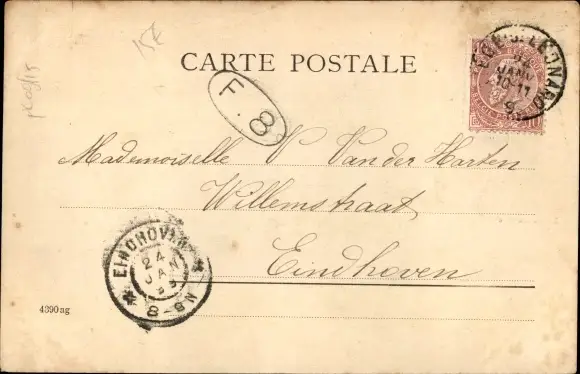 15E
CARTE POSTALE
F. 8
JANV
10-11
Mademoiselle V Van der Harten
Willemstraat
Eindhoven
EINDHOVEN
24
JAN
8-9N
4390ag